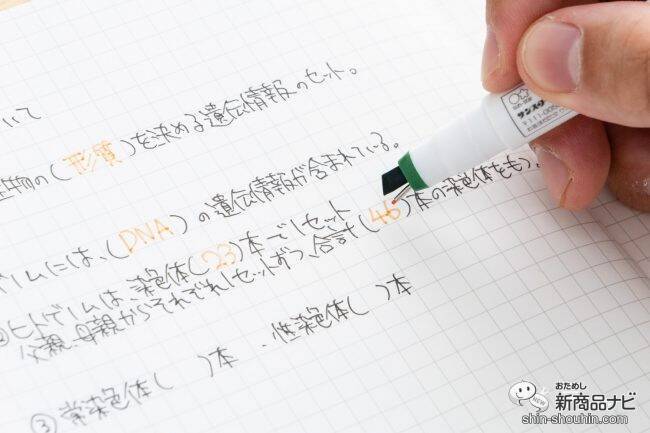 いて
生物の(形質)を決める遺伝情報のセット。
ゲノムには、(DNA)の遺伝情報が含まれている。
②ヒトゲノムは、染色体(23)本で1セット
父親・母親からそれぞれ1セットずつ、合計(46)本の染色体をもつ。
③常染色体( )本・性染色体( )本
サンスタ
〒111-00
おためし
新商品ナビ
NEW
shin-shouhin.com